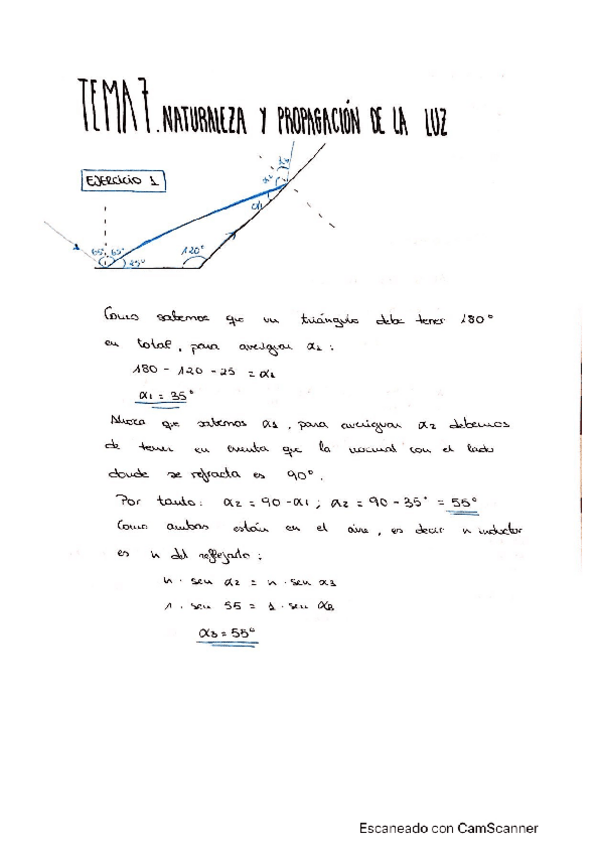 TEMA 7. NATURALEZA Y PROPAGACIÓN DE LA LUZ
EJERCICIO 1
65° 65°
25°
120°
α1
Como sabemos que un triángulo debe tener 180°
en total, para averiguar α1:
180 - 120 - 25 = α1
α1 = 35°
Ahora que sabemos α1, para averiguar α2 debemos
de tener en cuenta que la normal con el lado
donde se refracta es 90°.
Por tanto: α2 = 90 - α1; α2 = 90 - 35° = 55°
Como ambos están en el aire, es decir n inductor
es n del reflejado:
n · sen α2 = n · sen α3
1 · sen 55 = 1 · sen α3
α3 = 55°
Escaneado con CamScanner